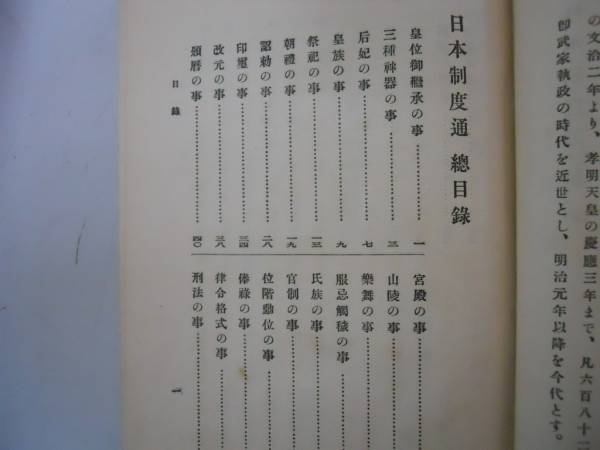 の文治二年より、孝明天皇の慶應三年まで、凡六百八十二
卽武家執政の時代を近世とし、明治元年以降を今代とす。
日本制度通 總目錄
皇位御繼承の事……一
三種神器の事……三
后妃の事……七
皇族の事……九
祭祀の事……一三
朝禮の事……一九
詔勅の事……二八
印璽の事……三四
改元の事……三八
頒曆の事……四〇
宮殿の事……
山陵の事……
樂舞の事……
服忌觸穢の事……
氏族の事……
官制の事……
位階勳位の事……
俸祿の事……
律令格式の事……
刑法の事……
目錄
一